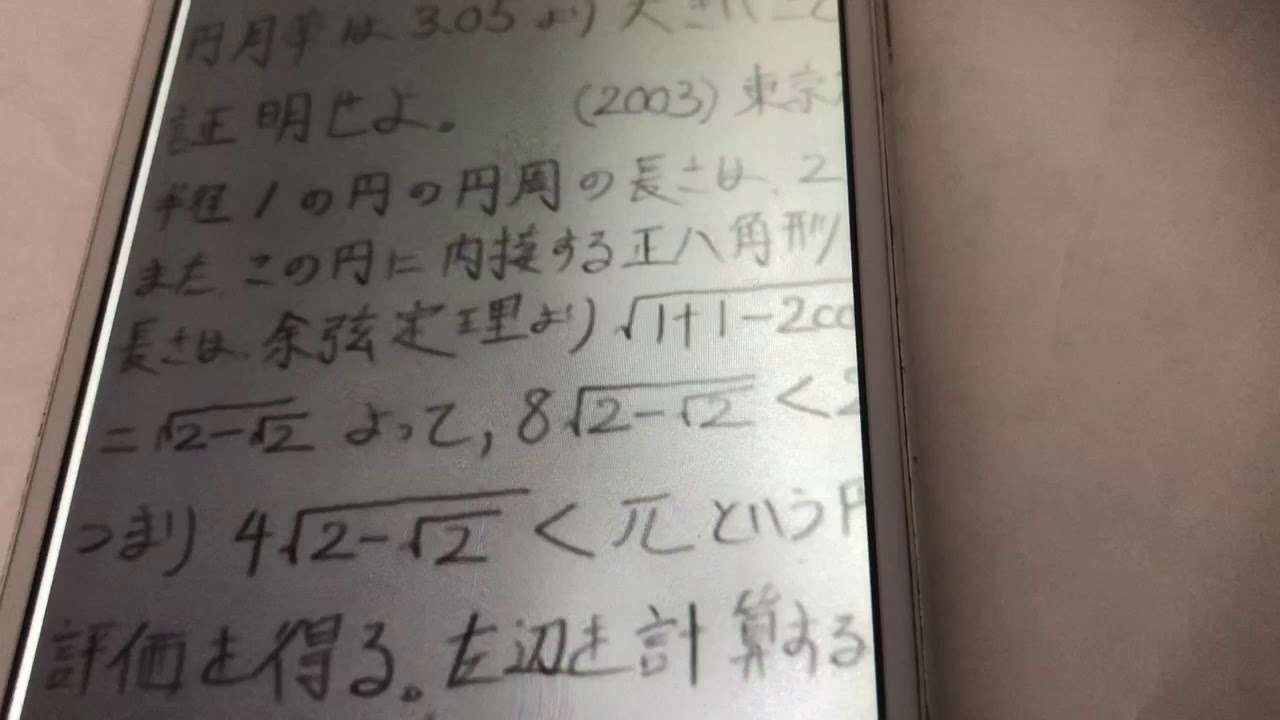 円周率は 3.05 より大きいこと
証明せよ。 (2003) 東京
半径1の円の円周の長さは、2
また、この円に内接する正八角形
長さは、余弦定理より √(1+1-2co
=√(2-√2) よって, 8√(2-√2) <2
つまり 4√(2-√2) < π という
評価を得る。左辺を計算する